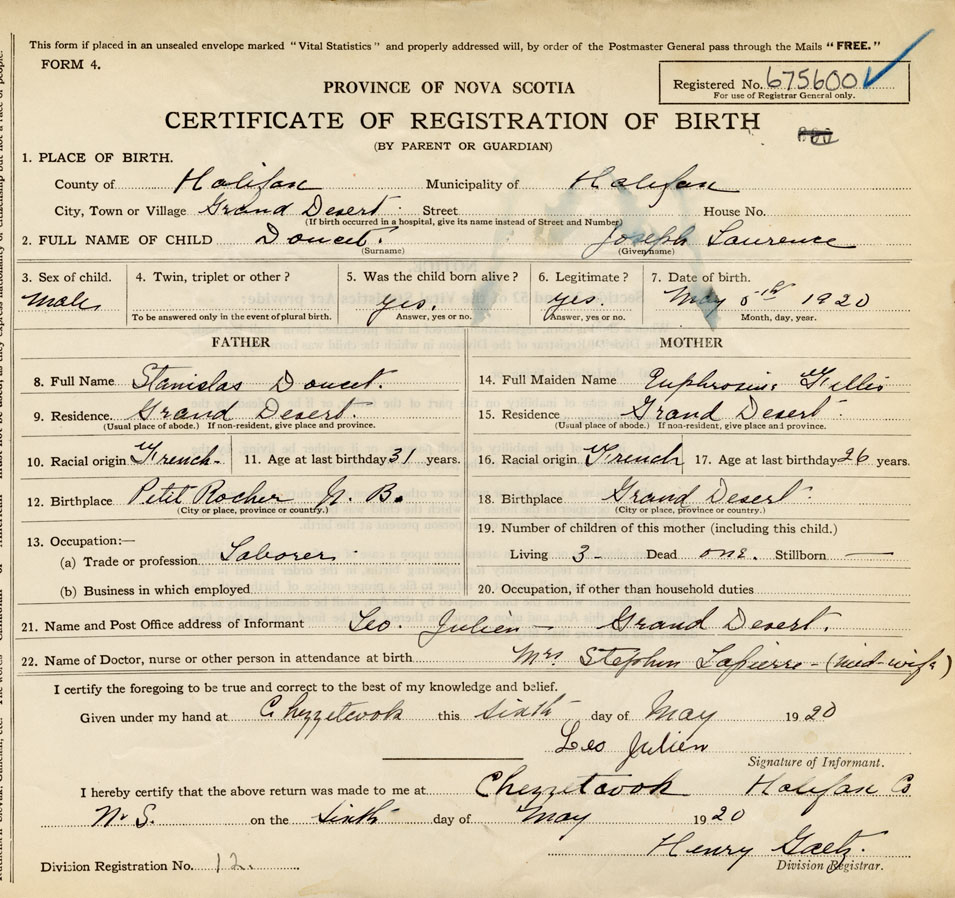 This form if placed in an unsealed envelope marked "Vital Statistics" and properly addressed will, by order of the Postmaster General pass through the Mails "FREE."
FORM 4.
Registered No. 675600
For use of Registrar General only.
PROVINCE OF NOVA SCOTIA
CERTIFICATE OF REGISTRATION OF BIRTH
(BY PARENT OR GUARDIAN)
1. PLACE OF BIRTH.
County of Halifax Municipality of Halifax
City, Town or Village Grand Desert Street House No.
(If birth occurred in a hospital, give its name instead of Street and Number)
2. FULL NAME OF CHILD Doucet. Joseph Laurence
(Surname) (Given name)
3. Sex of child. 4. Twin, triplet or other? 5. Was the child born alive? 6. Legitimate? 7. Date of birth.
Male yes. yes May 5th 1920
To be answered only in the event of plural birth. Answer, yes or no. Answer, yes or no. Month, day, year.
FATHER MOTHER
8. Full Name Stanislas Doucet. 14. Full Maiden Name Euphrosine Gillis
9. Residence. Grand Desert. 15. Residence Grand Desert.
(Usual place of abode.) If non-resident, give place and province. (Usual place of abode.) If non-resident, give place and province.
10. Racial origin French. 11. Age at last birthday 31 years. 16. Racial origin French 17. Age at last birthday 26 years.
12. Birthplace Petit Rocher N. B. 18. Birthplace Grand Desert.
(City or place, province or country.) (City or place, province or country.)
19. Number of children of this mother (including this child.)
13. Occupation:—
(a) Trade or profession Laborer Living 3 Dead one. Stillborn —
(b) Business in which employed 20. Occupation, if other than household duties
21. Name and Post Office address of Informant Leo. Julien — Grand Desert.
22. Name of Doctor, nurse or other person in attendance at birth Mrs. Stephen Lapierre - (mid-wife)
I certify the foregoing to be true and correct to the best of my knowledge and belief.
Given under my hand at Chezzetcook this sixth day of May 1920
Leo Julien
Signature of Informant.
I hereby certify that the above return was made to me at Chezzetcook Halifax Co
N. S. on the sixth day of May 1920
Henry Gaetz.
Division Registration No. 12. Division Registrar.